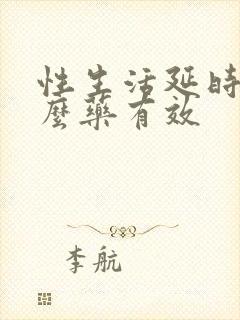 性生活延时
麼藥有效
李航